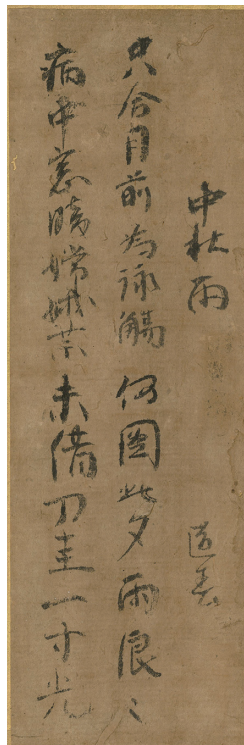 中秋雨 道春
只合月前為詠觴何圖此夕雨浪〻
病中窓暗嫦娥薬未借刀圭一寸光